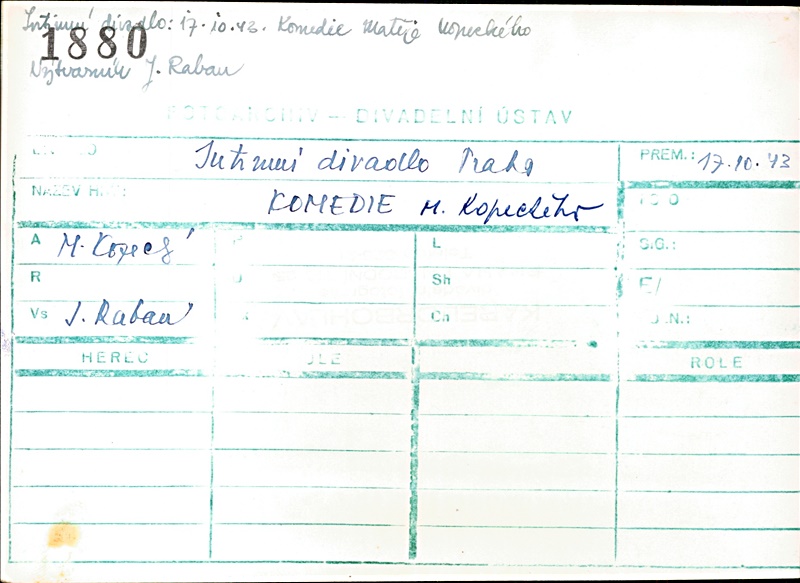 Intimní divadlo: 17.10.43. Komedie Matěje Kopeckého
1880
Výtvarník J. Raban
FOTOARCHIV — DIVADELNÍ ÚSTAV
Intimní divadlo Praha
PREM.: 17.10.43
NÁZEV HRY:
KOMEDIE M. Kopeckého
A M. Kopecký
L
S.G.:
R
Sh
Vs J. Raban
Ch
HEREC
ROLE